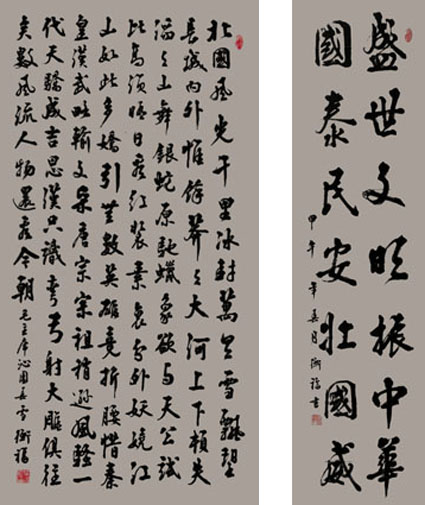 北國風光千里冰封萬里雪飄望
長城内外惟餘莽々大河上下頓失
滔々山舞銀蛇原馳蠟象欲与天公試
比高須晴日看紅裝素裹分外妖嬈江
山如此多嬌引無數英雄競折腰惜秦
皇漢武略輸文采唐宗宋祖稍遜風騷一
代天驕成吉思漢只識弯弓射大雕俱往
矣數風流人物還看今朝 毛主席沁園春雪
盛世文明振中華
國泰民安壯國威
甲午年春月